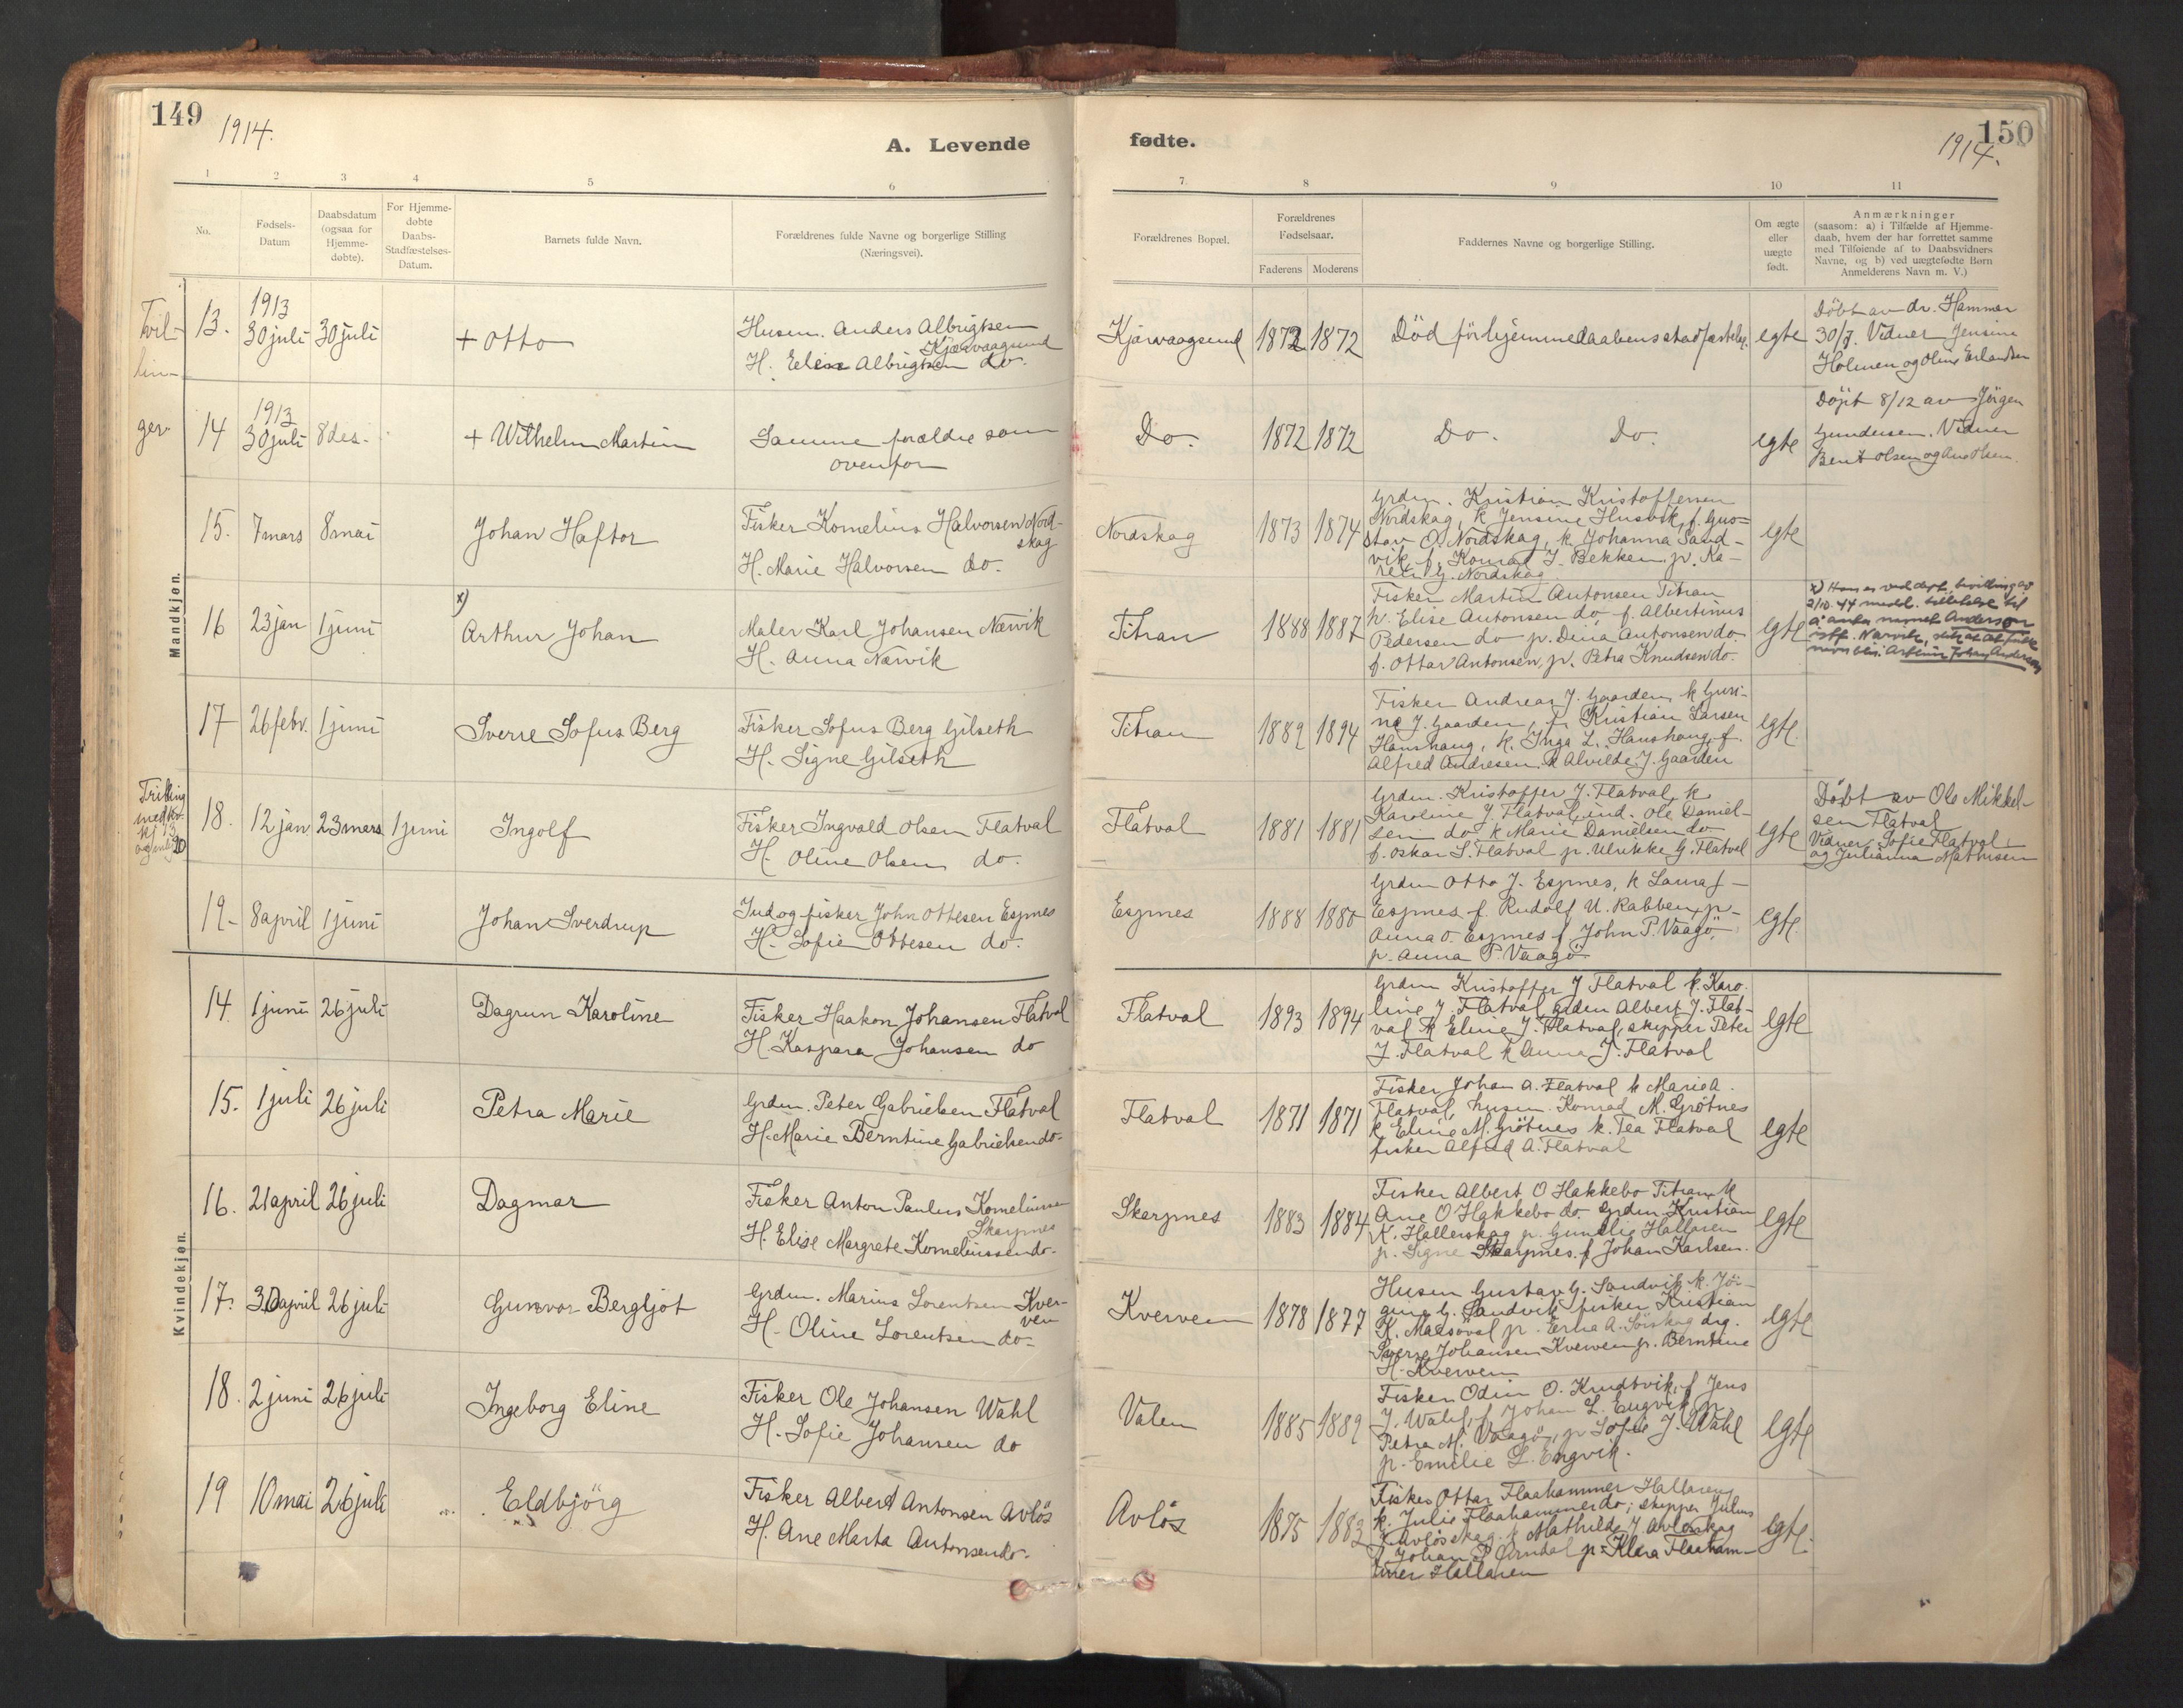 149
1914.
A. Levende
1
2
3
4
5
6
No.
Fødsels-
Datum
Daabsdatum
(ogsaa for
Hjemme-
døbte).
For Hjemme-
døbte
Daabs-
Stadfæstelses-
Datum.
Barnets fulde Navn.
Forældrenes fulde Navne og borgerlige Stilling
(Næringsvei).
Mandkjøn.
Tvil-
lin-
ger
13.
1913
30 juli
30 juli
+ Otto
Husm. Anders Albrigtsen
Kjærvaagsund
H. Elen Albrigtsen do.
14
1913
30 juli
8 des.
+ Wilhelm Martin
Samme forældre som
ovenfor
15.
7 mars
8 mai
Johan Haftor
Fisker Kornelius Halvorsen Nord-
skag
H. Marie Halvorsen do.
16
23 jan
1 juni
x)
Arthur Johan
Maler Karl Johansen Nærvik
H. Anna Nærvik
17
26 febr.
1 juni
Sverre Sofus Berg
Fisker Sofus Berg Gilseth
H. Signe Gilseth
Trilling
med kv.
kj 13
og 20
18.
12 jan
23 mars
1 juni
Ingolf
Fisker Ingvald Olsen Flatval
H. Oline Olsen do.
19-
8 april
1 juni
Johan Sverdrup
Ind og fisker John Ottesen Espnes
H. Sofie Ottesen do.
Kvindekjøn.
14
1 juni
26 juli
Dagrun Karoline
Fisker Haakon Johansen Flatval
H. Kaspara Johansen do
15.
1 juli
26 juli
Petra Marie
Grdm. Peter Gabrielsen Flatval
H. Marie Berntine Gabrielsen do.
16.
21 april
26 juli
Dagmar
Fisker Anton Paulus Korneliussen
Skarpnes
H. Elise Margrete Korneliussen do.
17.
30 april
26 juli
Gunvor Bergljot
Grdm. Marius Lorentsen Kver-
ven
H. Oline Lorentsen do-
18.
2 juni
26 juli
Ingeborg Eline
Fisker Ole Johansen Wahl
H. Sofie Johansen do
19
10 mai
26 juli
Eldbjörg
Fisker Albert Antonsen Avlös
H. Ane Marta Antonsen do.
fødte.
150
1914.
7.
8
9
10
11
Forældrenes Bopæl.
Forældrenes
Fødselsaar.
Faderens
Moderens
Faddernes Navne og borgerlige Stilling.
Om ægte
eller
uægte
født.
Anmærkninger
(saasom: a) i Tilfælde af Hjemme-
daab, hvem der har forrettet samme
med Tilføiende af to Daabsvidners
Navne, og b) ved uægtefødte Børn
Anmelderens Navn m. V.)
Kjærvaagsund
1872
1872
Död för hjemmedaabens stadfæstelse.
egte
Döbt av dr. Hammer
30/7. Vidner Jensine
Holmen og Oline Erlandsen
Do.
1872
1872
Do. Do.
egte
Döpt 8/12 av Jörgen
Gundersen. Vidner
Bent Olsen og Ane Olsen.
Nordskag
1873
1874
Grdm. Kristian Kristoffersen
Nordskag, k Jensine Husvik, f. Gus=
tav O. Nordskag, k. Johanna Sand-
vik, f. Konrad J. Bekken, p. Ka-
ren G. Nordskag
egte
Titran
1888
1887
Fisker Martin Antonsen Titran
k. Elise Antonsen do, f. Albertinus
Pedersen do p. Dina Antonsen do.
f. Ottar Antonsen, p. Petra Knudsen do.
egte
x) Han er ved dept. bevilling av
2/10. 44 medd. tillatelse til
å anta navnet Anderson
istf. Nærvik, slik at det fulde
navn blir Arthur Johan Anderson
Titran
1889
1894
Fisker Andreas J. Gaarden, k Guri-
ne J. Gaarden, f. Kristian Larsen
Hanshaug, k. Inga L. Hanshaug, f.
Alfred Andresen, k Alvilde J. Gaarden
egte.
Flatval
1881
1881
Grdm. Kristoffer J. Flatval, k
Karoline J. Flatval, ind. Ole Daniel-
sen do, k Marie Danielsen do
f. Oskar S. Flatval p. Ulrikke G. Flatval
egte
Döbt av Ole Mikkel-
sen Flatval
Vidner: Sofie Flatval
og Julianna Mathisen
Espnes
1888
1880
Grdm Otto J. Espnes, k Laura J-
Espnes, f. Rudolf U. Rabben, p-
Anna O. Espnes f. John P. Vaagö,
p. Anna P. Vaagö.
egte.
Flatval
1893
1894
Grdm Kristoffer J Flatval k. Karo.
line J. Flatval, grdm Albert J. Flat-
val k Eline J. Flatval, skipper Peter
J. Flatval k Anna J. Flatval
egte
Flatval
1871
1871
Fisker Johan A. Flatval k Marie A.
Flatval, husm. Konrad M. Grötnes
k Eline M. Grötnes k. Tea Flatval
fisker Alfred A. Flatval
egte
Skarpnes
1883
1884
Fisker Albert O Hakkebo Titran, k
Ane O Hakkebo do. grdm Kristian
K. Hallerskag p. Gunelie Hallaren
p. Signe Skarpnes. f Johan Karlsen.
egte
Kverven
1878
1877
Husm Gustav G. Sandvik k. Jö-
gine G. Sandvik fisker Kristian
K. Maasöval p. Erna A. Sörskag drg.
Sverre Johansen Kverven p. Berntine
H. Kverven
egte
Valen
1885
1889
Fisker Odin O. Knudtvik, f Jens
J. Wahl, f. Johan L. Engvik p.
Petra M. Vaagö, p Sofie J. Wahl
p. Emelie L. Engvik.
egte
Avlös
1875
1883
Fisker Ottar Flaahammer Hallaren,
k. Julie Flaahammer do; skipper Julius
J. Avlösskag. k Mathilde J. Avlösskag
f. Johan P. Arndal p. Klara Flaaham-
mer Hallaren
egte.